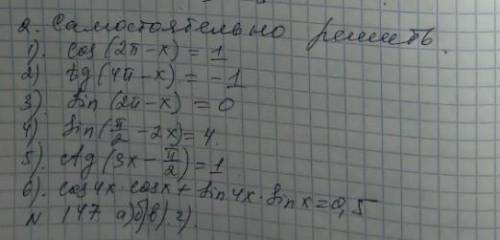 2. Самостоятельно решить.
1). cos (2π - x) = 1
2) tg (4π - x) = -1
3). sin (2π - x) = 0
4) sin (π/2 - 2x) = 4.
5) ctg (3x - π/2) = 1
6). cos 4x · cos x + sin 4x · sin x = 0,5
N 147 а) б) в). г).